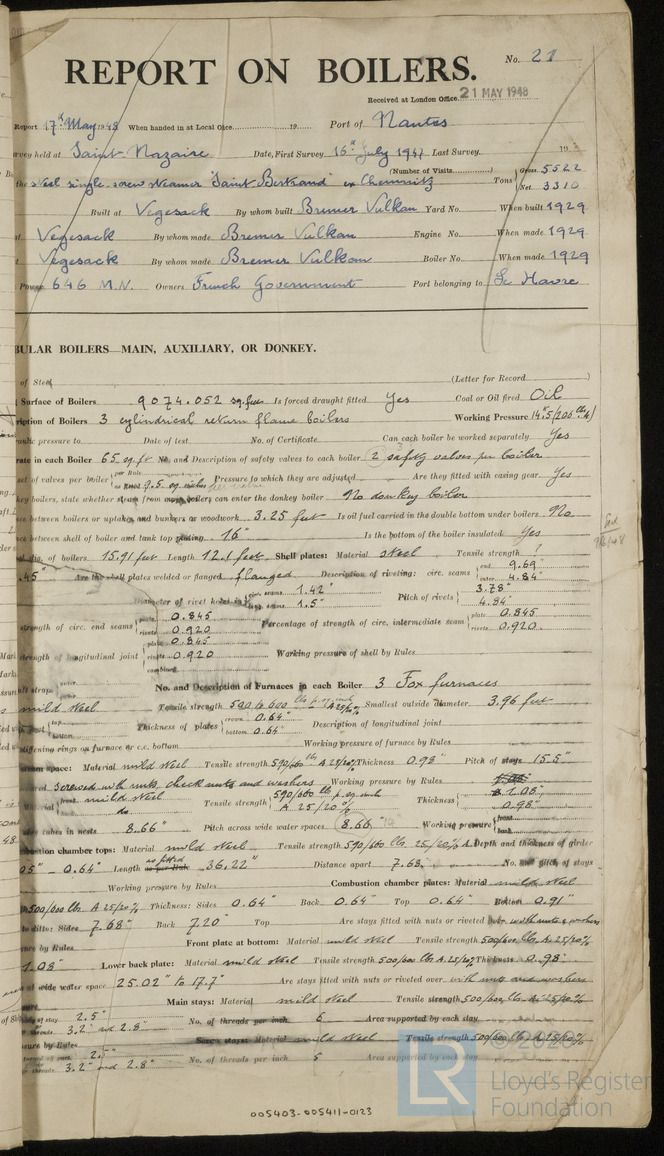 No. 21
REPORT ON BOILERS.
Received at London Office 21 MAY 1948
Report 17th May 1948 When handed in at Local Office 19 Port of Nantes
Survey held at Saint-Nazaire Date, First Survey 16th July 1947 Last Survey 19
(Number of Visits ) Gross 5522
the steel single screw steamer "Saint Bertrand" ex Chemnitz Tons Net 3310
Built at Vegesack By whom built Bremer Vulkan Yard No. When built 1929
Vegesack By whom made Bremer Vulkan Engine No. When made 1929
Vegesack By whom made Bremer Vulkan Boiler No. When made 1929
Power 646 M.N. Owners French Government Port belonging to Le Havre
BULAR BOILERS—MAIN, AUXILIARY, OR DONKEY.
of Steel (Letter for Record )
Surface of Boilers 9074.052 sq. feet Is forced draught fitted Yes Coal or Oil fired Oil
ription of Boilers 3 cylindrical return flame boilers Working Pressure
raulic pressure to Date of test No. of Certificate Can each boiler be worked separately Yes
rate in each Boiler 65 sq. ft No. and Description of safety valves to each boiler 2 safety valves per boiler
set of valves per boiler per Rule 9.5 sq. inches Pressure to which they are adjusted Are they fitted with easing gear Yes
key boilers, state whether steam from main boilers can enter the donkey boiler No donkey boiler
ce between boilers or uptakes and bunkers or woodwork 3.25 feet Is oil fuel carried in the double bottom under boilers No
ce between shell of boiler and tank top plating 16" Is the bottom of the boiler insulated Yes
dia. of boilers 15.91 feet Length 12.1 feet Shell plates: Material steel Tensile strength !
.45" Are the shell plates welded or flanged flanged Description of riveting: circ. seams end 9.69
inter. 4.84
Diameter of rivet holes in circ. seams 1.42" Pitch of rivets 3.78"
1.5" 4.84"
strength of circ. end seams plate 0.845 Percentage of strength of circ. intermediate seams plate 0.845
rivets 0.920 rivets 0.920
plate 0.845
strength of longitudinal joint rivets 0.920 Working pressure of shell by Rules
combined
No. and Description of Furnaces in each Boiler 3 Fox furnaces
mild steel Tensile strength 590/600 lbs p. sq. inch A 25/20% Smallest outside diameter 3.96 feet
top Thickness of plates crown 0.64" Description of longitudinal joint
bottom bottom 0.64"
stiffening rings on furnace or c.c. bottom Working pressure of furnace by Rules
steam space: Material mild steel Tensile strength 590/660 lb. A 25/20% Thickness 0.98" Pitch of stays 15.5"
Screwed with nuts, check nuts and washers Working pressure by Rules
Material front mild steel Tensile strength 590/660 lbs p. sq. inch Thickness 1.08"
do A 25/20% 0.98"
tubes in nests 8.66" Pitch across wide water spaces 8.66 Working pressure front
back
bustion chamber tops: Material mild steel Tensile strength 590/660 lb. 25/20% A. Depth and thickness of girder
05" - 0.64" Length as fitted 36.22" Distance apart 7.68 No. and pitch of stays
Working pressure by Rules Combustion chamber plates: Material mild steel
500/600 lbs A 25/20% Thickness: Sides 0.64" Back 0.64 Top 0.64" Bottom 0.91"
to ditto: Sides 7.68" Back 7.20" Top Are stays fitted with nuts or riveted over with nuts & washers
ure by Rules Front plate at bottom: Material mild steel Tensile strength 500/600 lbs A. 25/20%
1.08" Lower back plate: Material mild steel Tensile strength 500/600 lbs A. 25/20% Thickness 0.98"
of wide water space 25.02" to 17.7" Are stays fitted with nuts or riveted over with nuts and washers
Main stays: Material mild steel Tensile strength 500/600 lbs A. 25/20%
of stay 2.5" No. of threads per inch 6 Area supported by each stay
threads 3.2" and 2.8"
sure by Rules Screw stays: Material mild steel Tensile strength 500/600 lbs A. 25/20%
No. of threads per inch Area supported by each stay
threads 3.2" and 2.8"
005403-005411-0123
LR
© 2020
Lloyd's Register
Foundation